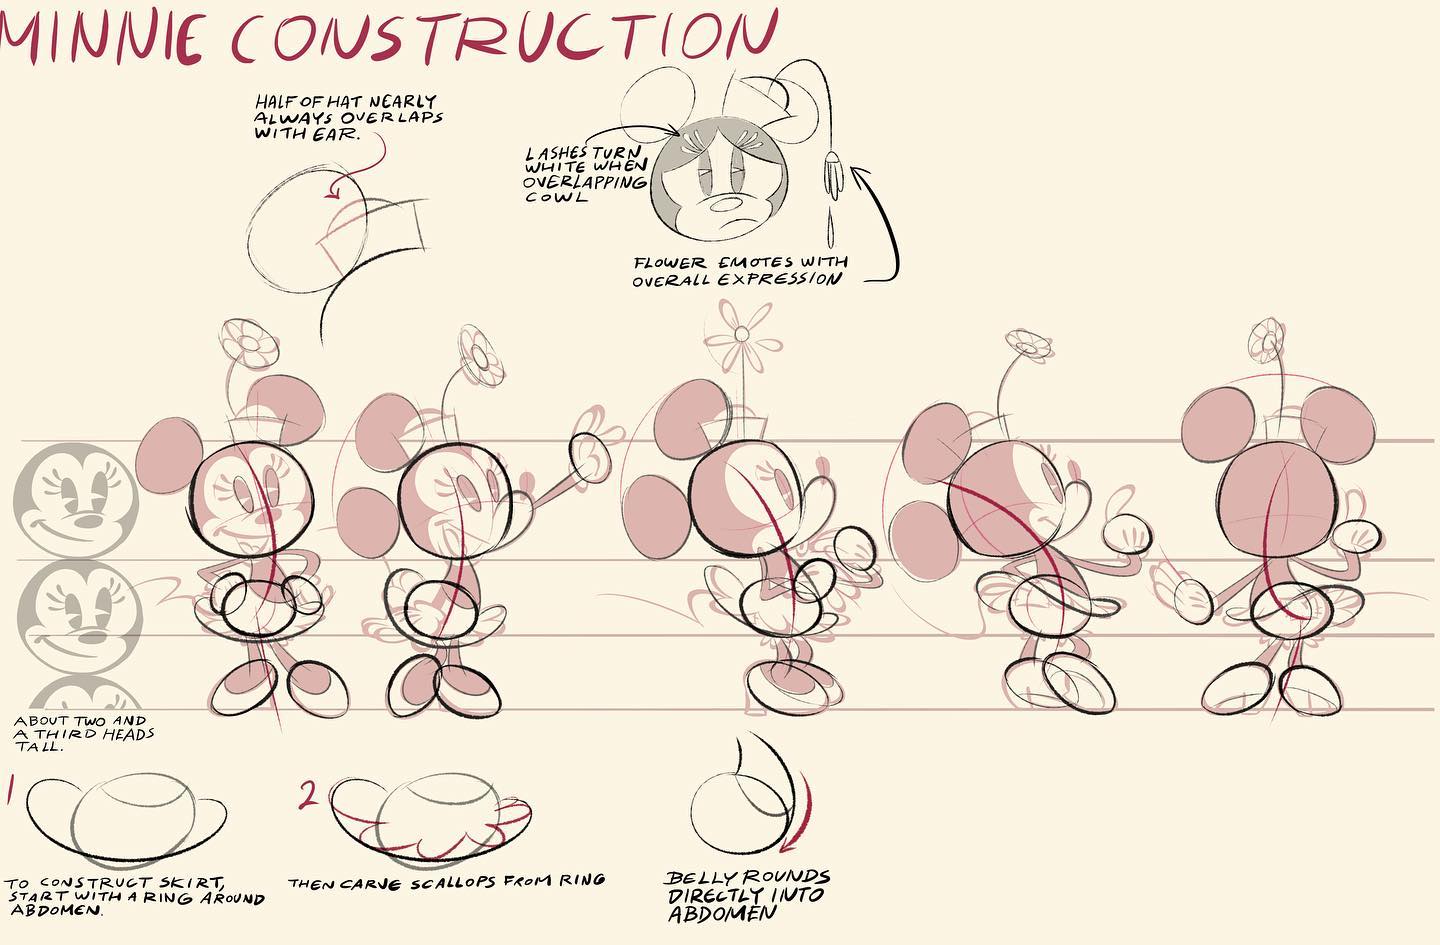 MINNIE CONSTRUCTION
HALF OF HAT NEARLY
ALWAYS OVERLAPS
WITH EAR.
LASHES TURN
WHITE WHEN
OVERLAPPING
COWL
FLOWER EMOTES WITH
OVERALL EXPRESSION
ABOUT TWO AND
A THIRD HEADS
TALL.
1
TO CONSTRUCT SKIRT,
START WITH A RING AROUND
ABDOMEN.
2
THEN CARVE SCALLOPS FROM RING
BELLY ROUNDS
DIRECTLY INTO
ABDOMEN